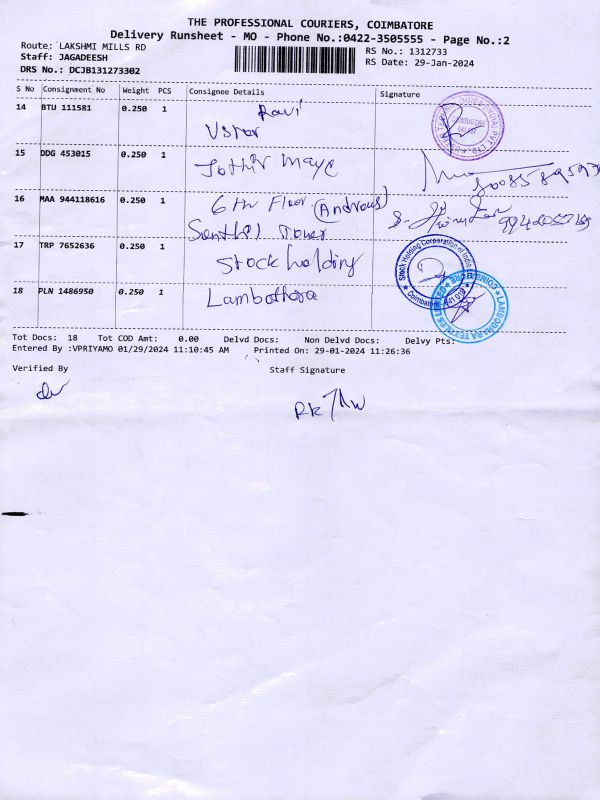 THE PROFESSIONAL COURIERS, COIMBATORE
Delivery Runsheet - MO - Phone No.:0422-3505555 - Page No.:2
Route: LAKSHMI MILLS RD
RS No.: 1312733
Staff: JAGADEESH
RS Date: 29-Jan-2024
DRS No.: DCJB131273302
S No Consignment No Weight PCS Consignee Details Signature
14 BTU 111581 0.250 1 Ravi
15 DDG 453015 0.250 1
16 MAA 944118616 0.250 1 6th Floor
Tower
17 TRP 7652636 0.250 1 Stock holding
Stock Holding Corporation of India
Coimbatore
18 PLN 1486950 0.250 1
Tot Docs: 18 Tot COD Amt: 0.00 Delvd Docs: Non Delvd Docs: Delvy Pts:
Entered By :VPRIYAMO 01/29/2024 11:10:45 AM Printed On: 29-01-2024 11:26:36
Verified By Staff Signature